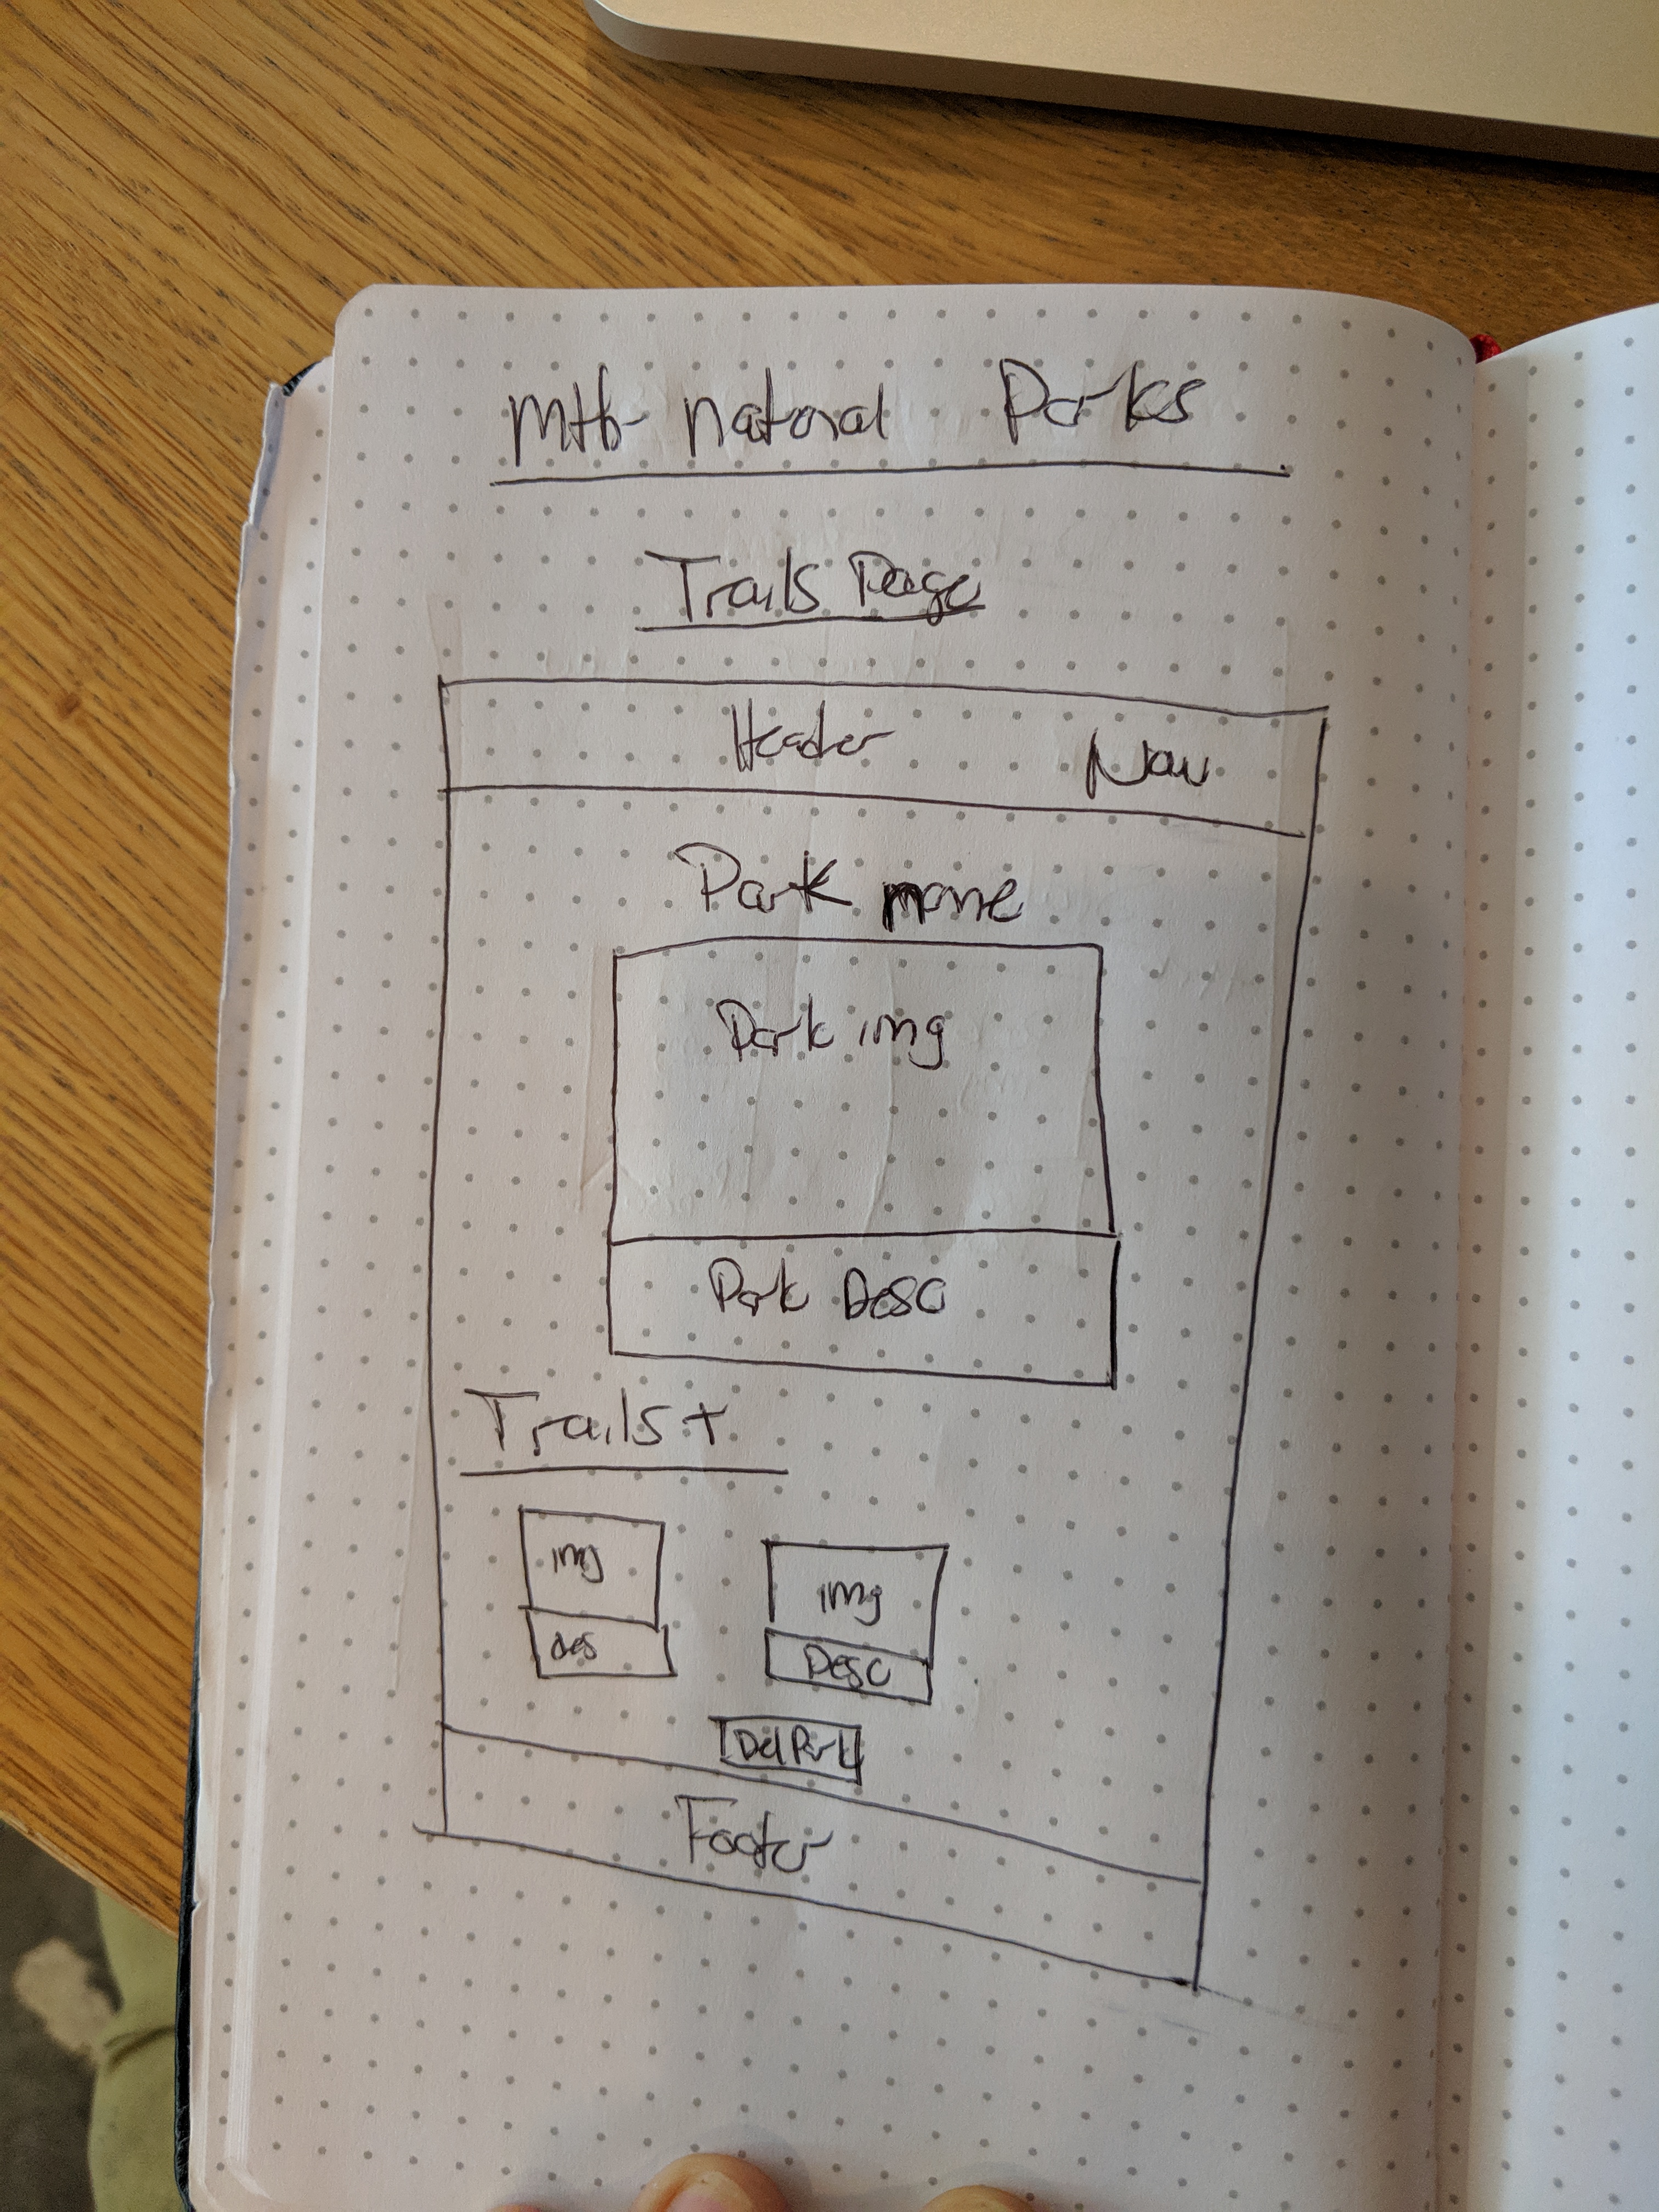 Mtb National Parks
Trails Page
Header Nav
Park name
Park img
Park Desc
Trails +
img img
des Desc
Del Park
Footer